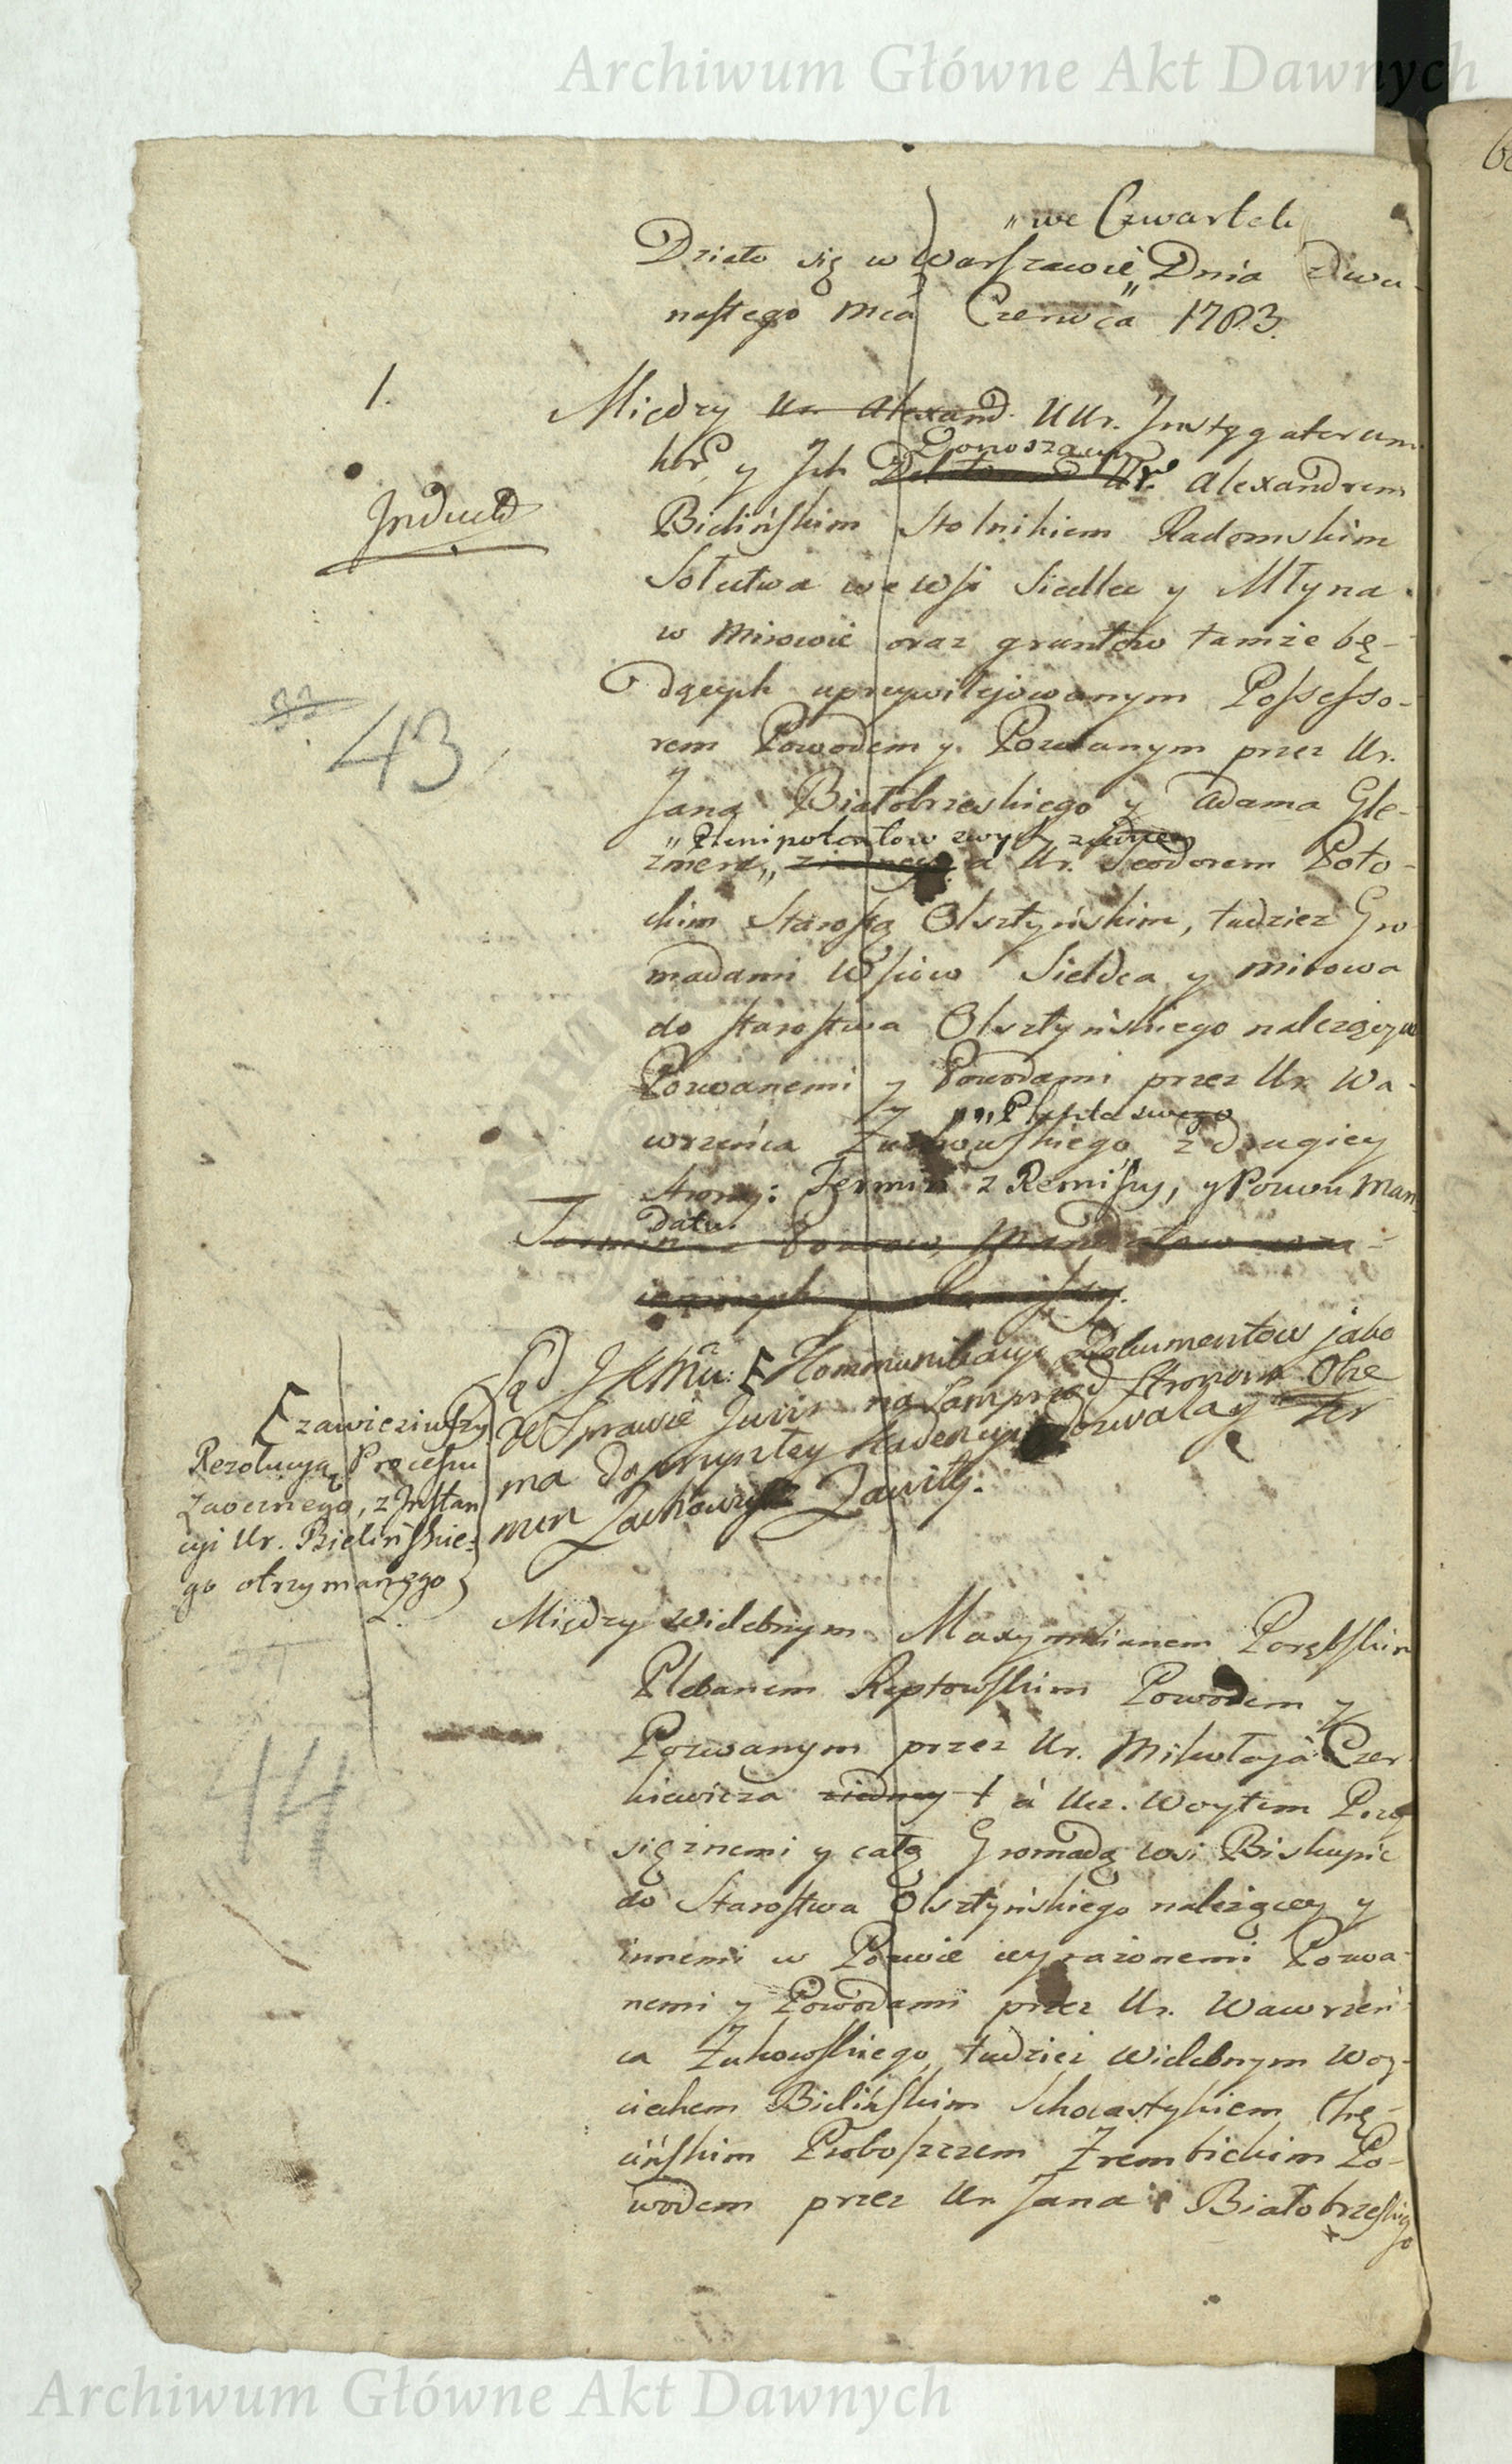 Archiwum Główne Akt Dawnych
„we Czwartek
Działo się w Warszawie „ Dnia dwu-
nastego Mca Czerwca 1783.
1.
Między Ur. Alexand. UUr. Instygatorem
kor. y Ich Donoszącym Ur. Alexandrem
Inducta
Bielińskim Stolnikiem Radomskim
Sołectwa we Wsi Siedlcu y Młyna
w Mirowie oraz gruntów tamże bę-
dących uprzywilejowanym Possesso-
43
rem Powodem y Pozwanym przez Ur.
Jana Białobrzeskiego y Adama Gle-
„Plenipotentow swych z jedney
zmera „ z jedney a Ur. Teodorem Poto-
ckim Starostą Olsztyńskim, tudzież Gro-
madami Wsiów Sieldca y Mirowa
do Starostwa Olsztyńskiego należącym
Pozwanemi y Powodami przez Ur. Wa-
wrzeńca Żukowskiego z drugiey
strony: Termin z Remissy, y Pozwu Man
datu.
Termin z Pozwow Mandatow
y Remissy.
Sąd JKMci: [ Kommunikacyą Dokumentow jako
w Sprawie Juris na Samprzod Stronom Obe
ma do przyszłey Kadencyi dozwala y Ter
min Zachowuje Zawity.
[ zawiesiwszy
Rezolucyą Processu
Zaocznego, z Instan
cyi Ur. Bielińskie-
go otrzymanego
2.
Między Wielebnym Maxymilianem Porębskim
Plebanem Reptowskim Powodem y
44
Pozwanym przez Ur. Mikołaja Czer
kiewicza z jedney + a Ucz. Woytem Przy
siężnemi y całą Gromadą wsi Biskupic
do Starostwa Olsztyńskiego należącey y
innemi w Pozwie wyrażonemi Pozwa-
nemi y Powodami przez Ur. Wawrzeń-
ca Żukowskiego, tudzież Wielebnym Woy-
ciechem Bielińskim Scholastykiem Chę-
cińskim Proboszczem Żrembickim Po-
wodem przez Ur. Jana Białobrzeskiego
Archiwum Główne Akt Dawnych